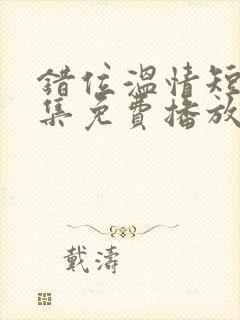 錯位溫情短
集免費播放
戴濤